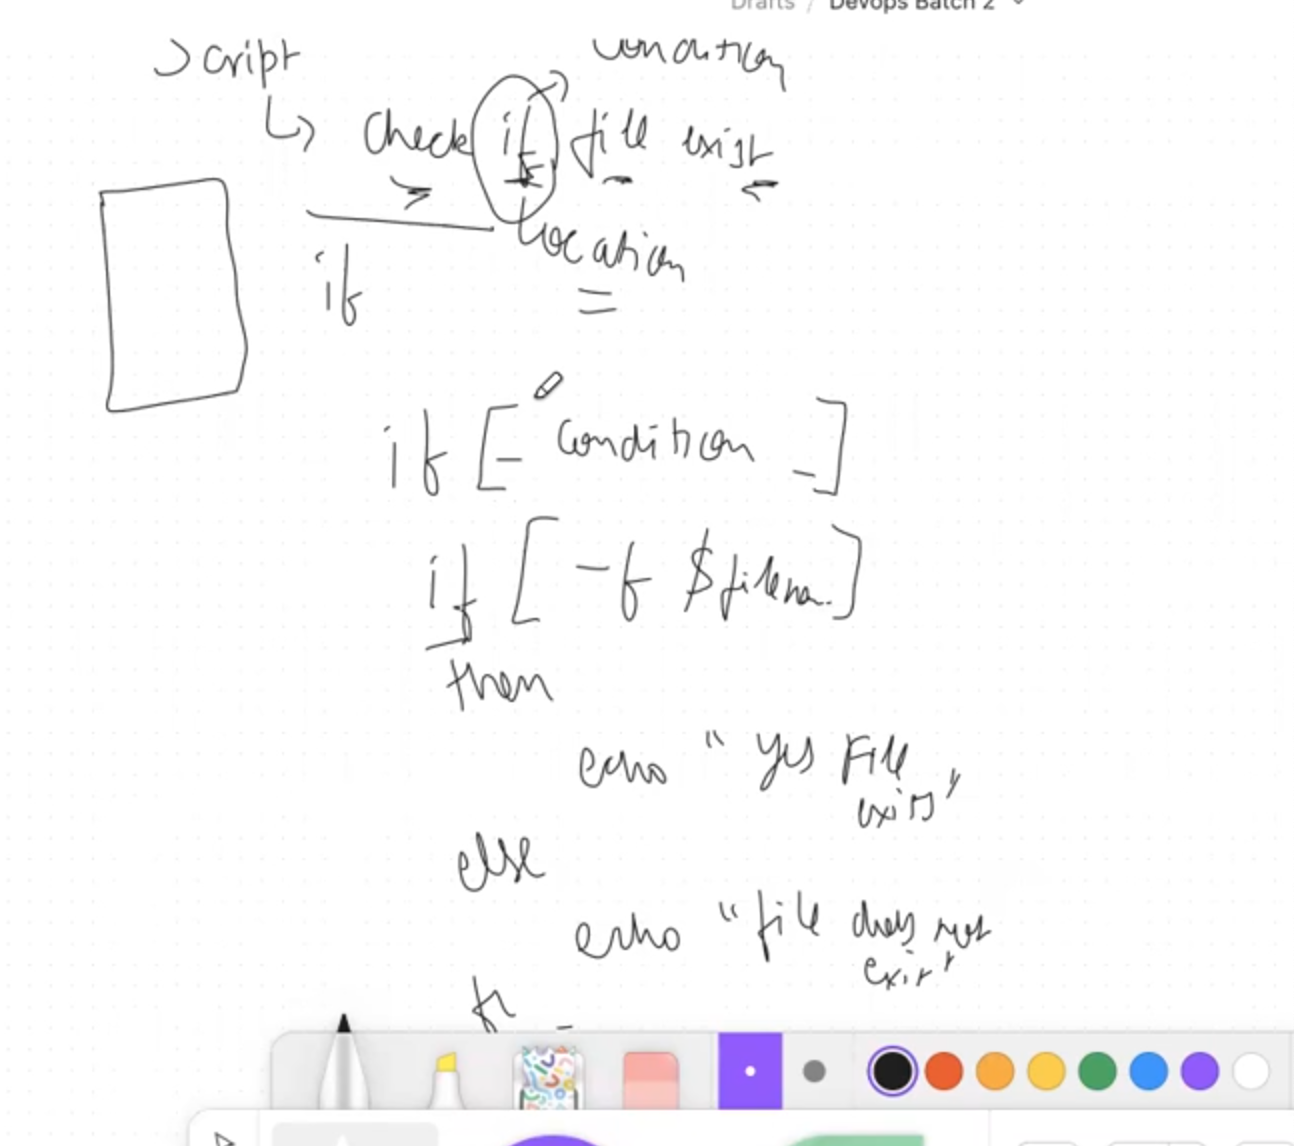 Drafts / Devops Batch 2
Script
condition
check if file exist
location
if
=
if [_ condition _]
if [ -f $filena.. ]
then
echo " yes File
exists"
else
echo "file does not
exist"
fi